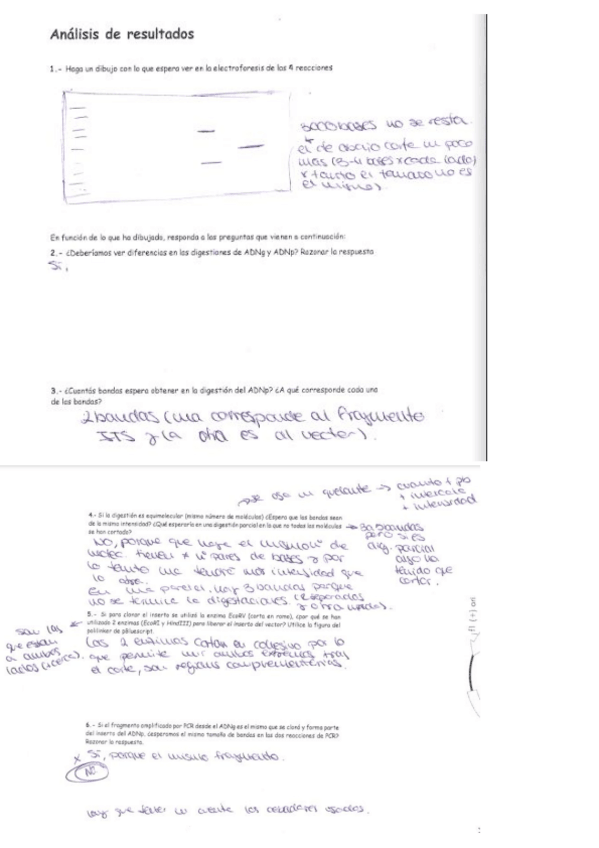 Análisis de resultados
1.- Haga un dibujo con lo que espera ver en la electroforesis de las 4 reacciones
3000 bases no se resta.
el de abajo corte un poco
más (3-4 bases x cada lado)
x tanto el tamaño no es
el mismo).
En función de lo que ha dibujado, responda a las preguntas que vienen a continuación:
2.- ¿Deberíamos ver diferencias en las digestiones de ADNg y ADNp? Razonar la respuesta
Sí,
3.- ¿Cuántas bandas espera obtener en la digestión del ADNp? ¿A qué corresponde cada una
de las bandas?
2 bandas (una corresponde al fragmento
ITS y la otra es al vector).
se usa un quelante → cuanto + pb
+ intercala
+ intensidad
4.- Si la digestión es equimolecular (mismo número de moléculas) ¿Espera que las bandas sean
de la misma intensidad? ¿Qué esperaría en una digestión parcial en la que no todas las moléculas
se han cortado?
→ 3 bandas
pero si es
dig. parcial
algo ha
tenido que
cortar.
No, porque que haya el mismo nº de
molec. tienen x nº pares de bases y por
lo tanto una tendrá más intensidad que
la otra.
En una parcial, hay 3 bandas porque
no se termina la digestación (2 separadas
y otra unida).
5.- Si para clonar el inserto se utilizó la enzima EcoRV (corta en romo), ¿por qué se han
utilizado 2 enzimas (EcoRI y HindIII) para liberar el inserto del vector? Utilice la figura del
polilinker de pBluescript.
son las
que están
a ambos
lados
Las 2 enzimas cortan en cohesivo por lo
que permite unir ambos extremos tras
el corte, son regiones complementarias.
f1 (+) ori
6.- Si el fragmento amplificado por PCR desde el ADNg es el mismo que se clonó y forma parte
del inserto del ADNp, ¿esperamos el mismo tamaño de bandas en las dos reacciones de PCR?
Razonar la respuesta.
x Sí, porque el mismo fragmento.
NO
hay que tener en cuenta los cebadores usados.